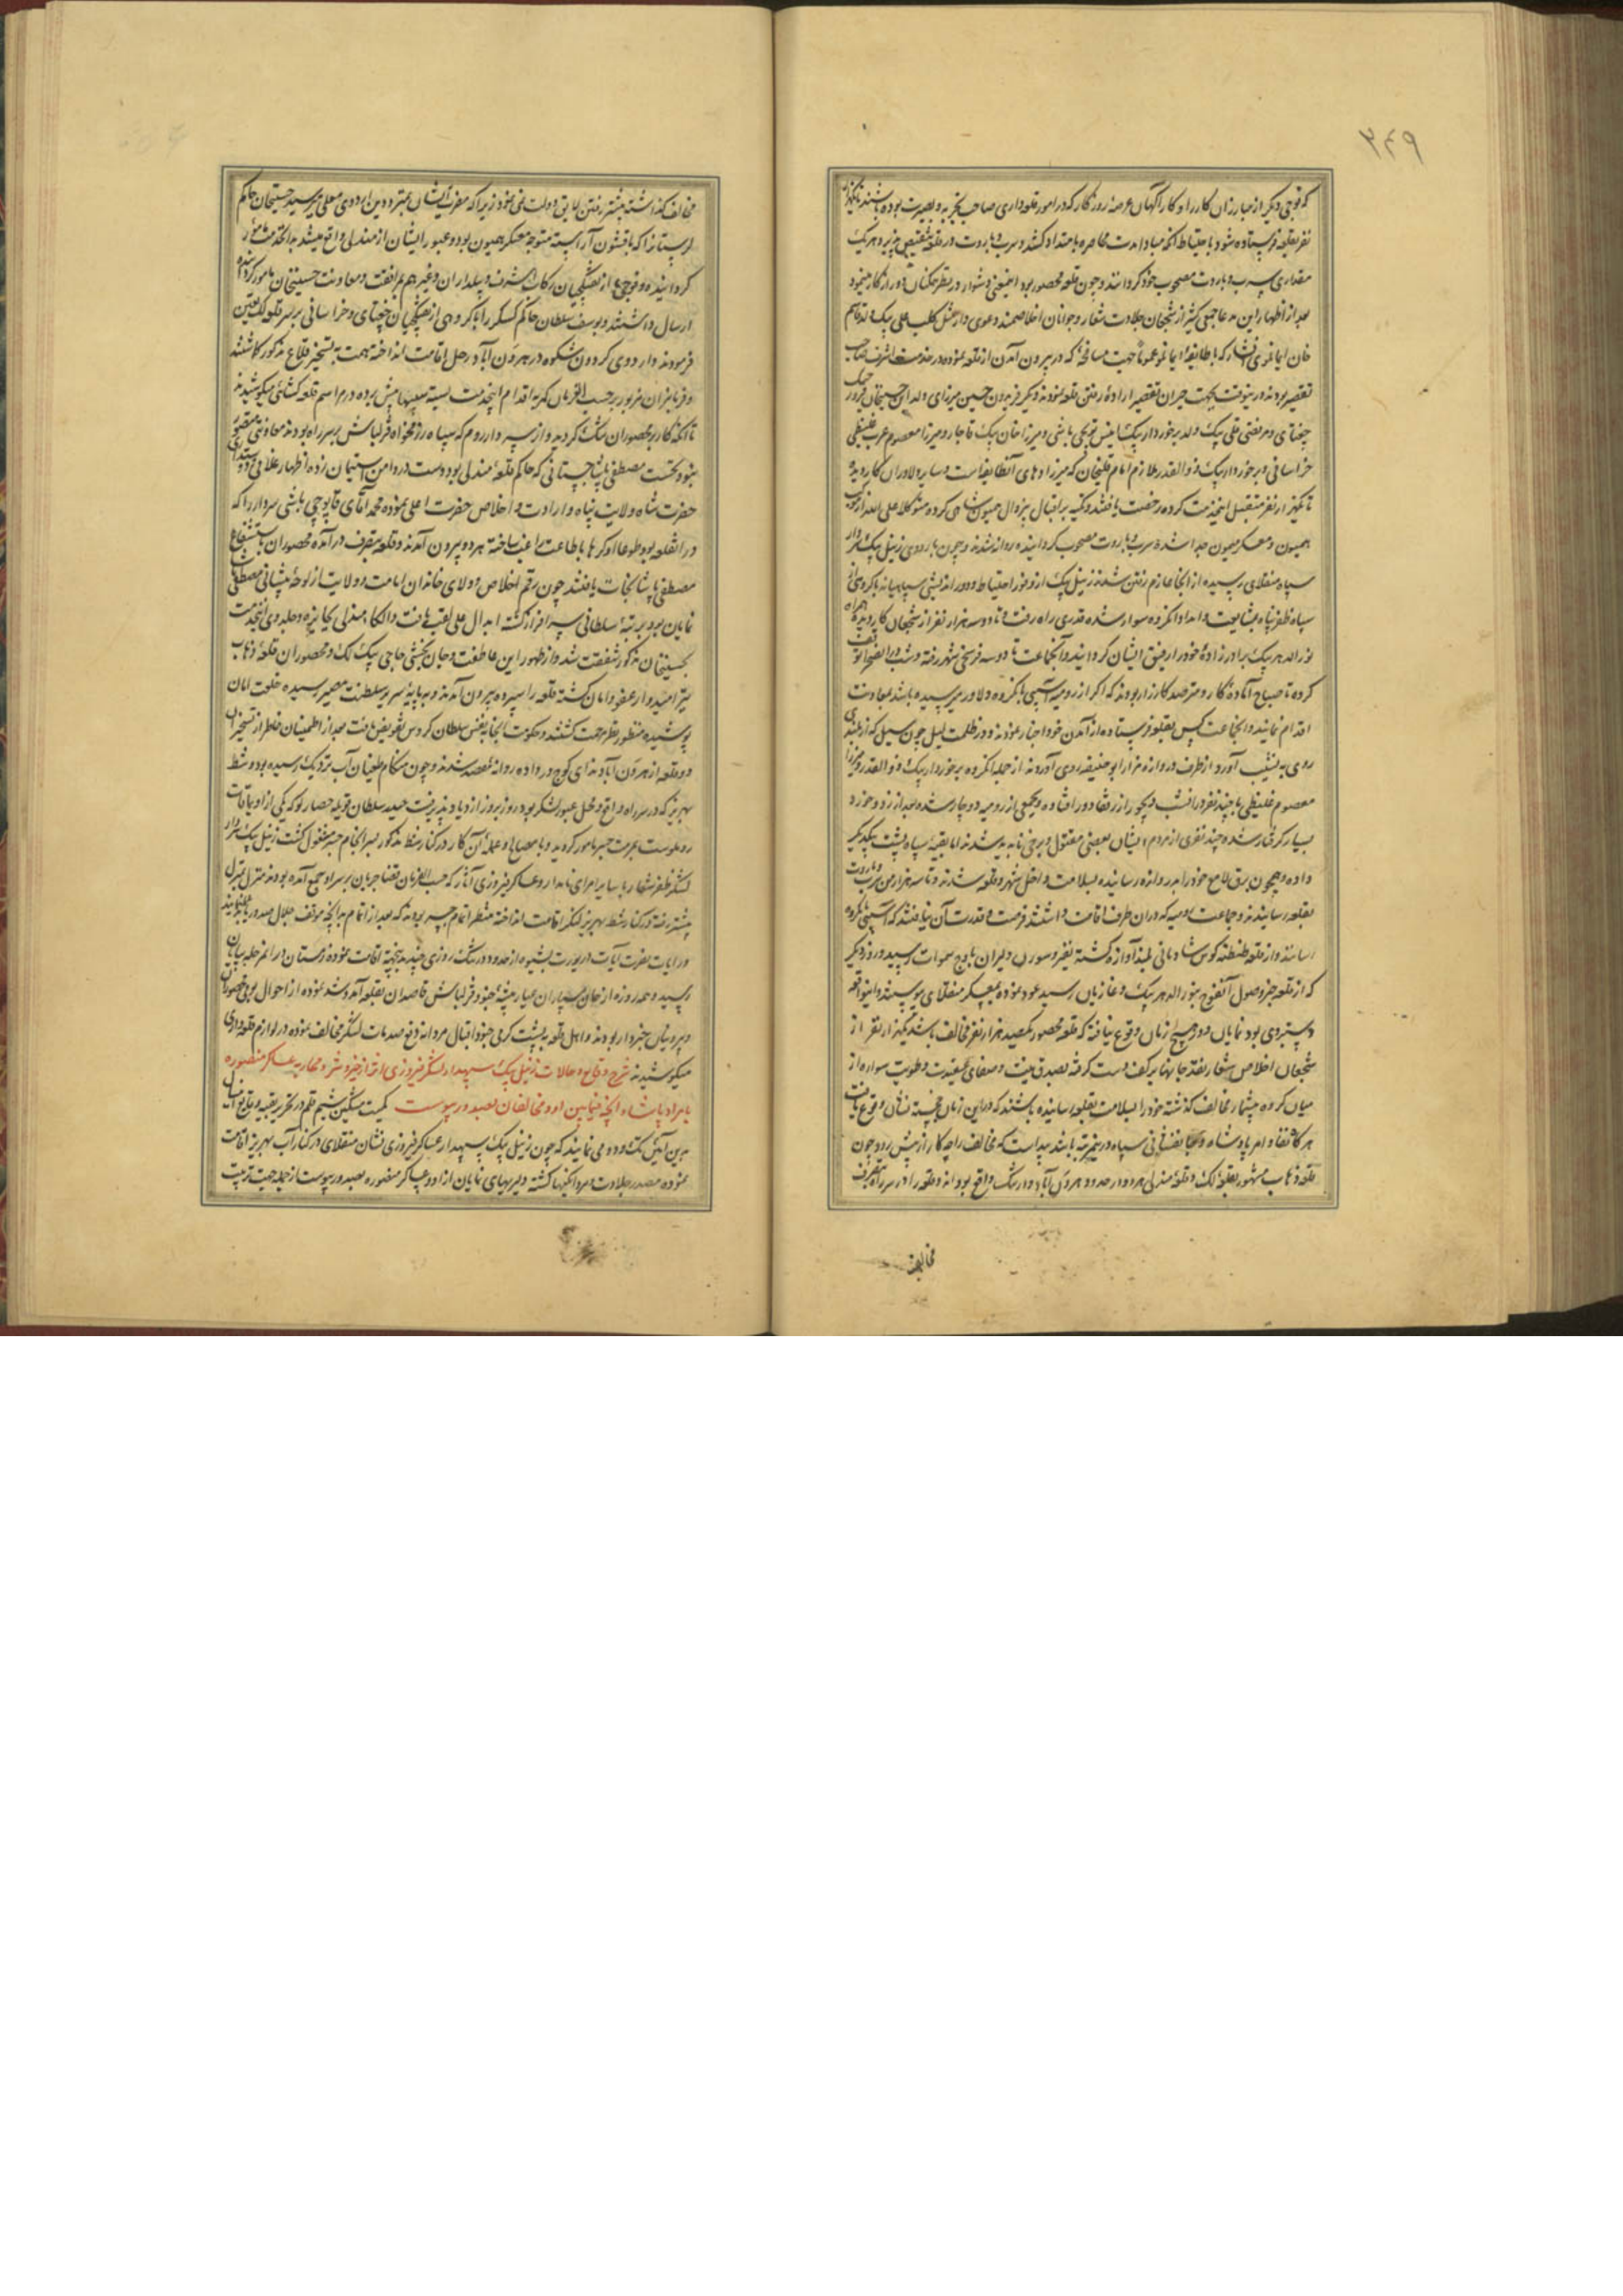 ۳۴۹
که فوجی دیگر از مبارزان کارزار و کارآگهان عرصهٔ روزگار که در امور قلعه‌داری صاحب تجربه و بصیرت بوده باشند
نفر بقلعه فرستاده شود با احتیاط آنکه مبادا مدت محاصره بامتداد کشد و سرب و باروت در قلعه نقیض پذیرد هر یک
مقداری سرب و باروت مصحوب خود گردانند و چون قلعه محصور بود اینمعنی دشوار و در نظر همگنان دور از کار مینمود
بعد از اظهار این مدعا جمعی کثیر از شجعان جلادت شعار و جوانان اخلاصمند دعوی دار مثل کلب علی بیک ولد قاسم
خان ایمانلوی افشار که با طایفهٔ ایمانلو عموماً جهت مسامحهٔ که در بیرون آمدن از قلعه نموده در خدمت اشرف صاحب
تقصیر بودند درینوقت بجهت جبران تقصیر ارادهٔ رفتن قلعه نمودند و دیگر فریدون حسین میرزای ولد
چغتای و مرتضی قلی بیک ولد برخوردار بیک انیس توپچی باشی و میرزا خان بیک قاجار و میرزا معصوم عرب غلیظی
خراسانی و برخوردار بیک ذوالقدر ملازم امام قلیخان که میرزادهای آنطایفه است و سایر دلاوران کار دیده
تا یکهزار نفر متقبل اینخدمت کرده رخصت یافتند و تکیه بر اقبال بیزوال همیون شاهی کرده متوکلا علی الله از
همیون و معسکر میمون جدا شده سرب و باروت مصحوب گردانیده روانه شدند و چون باردوی زینل بیک سردار
سپاه منقلای رسیده از آنجا عازم رفتن شدند زینل بیک از وفور احتیاط و دوراندیشی سپاهیانه با گروهی از
سپاه ظفر پناه بمشایعت و امداد آنگروه سوار شده قدری راه رفت و تا دو سه هزار نفر از شجعان کار دیده همراه
نورالدهر بیک برادرزادهٔ خود را رفیق ایشان گردانید و آنجماعت تا دو سه فرسخی شهر رفته و شب در آنصحرا توقف
کرده تا صباح آمادهٔ کار و مترصد کارزار بودند که اگر از رومیه آسیبی بآنگروه دلاور رسیده باشد بمعاونت
اقدام نمایند و آنجماعت کس بقلعه فرستاده از آمدن خود اخبار نمودند و در ظلمت لیل چون سیلی که از بلندی
روی به نشیب آورد از طرف دروازه مزار ابوحنیفه روی آوردند از جمله آنگروه برخوردار بیک ذوالقدر و میرزا
معصوم غلیظی با چند نفر در آنشب دیجور از رفقا دور افتاده و بجمعی از رومیه دوچار شده بعد از زد و خورد
بسیار گرفتار شده چند نفری از مردم ایشان بعضی مقتول و برخی نابدید شدند اما بقیهٔ سپاه پشت بیکدیگر
داده و همچون برق لامع خود را بدروازه رسانیده بسلامت داخل شهر و قلعه شدند و تا سه هزار من سرب و باروت
بقلعه رسانیدند و جماعت رومیه که در آن طرف اقامت داشتند فرصت و قدرت آن نیافتند که آسیبی بآنگروه
رسانند و از قلعه طنطنهٔ کوس شادمانی بلند آوازه گشته نفیر و سورن دلیران باوج سموات رسید و روز دیگر
که از قلعه خبر وصول آنفوج بنورالدهر بیک و غازیان رسید عود نموده بمعسکر منقلای پیوستند و اینواقعه
دستبردی بود نمایان و در هیچ زمان وقوع نیافته که قلعه محصور یکصد هزار نفر مخالف باشد یکهزار نفر از
شجعان اخلاص شعار نقد جانها بر کف دست گرفته بصدق نیت و صفای عقیدت و طویت سواره از
میان گروه بیشمار مخالف گذشته خود را بسلامت بقلعه رسانیده باشند که در این زمان خجسته نشان وقوع یافت
هر گاه نفاذ امر پادشاه و جانفشانی سپاه در این مرتبه باشد پیداست که مخالف را چه کار از پیش رود چون
قلعه ذهاب مشهور بقلعهٔ لک و قلعهٔ مندلی هر دو در حدود هرون آباد و درتنگ واقع بود اند و قلعه را در سر راه بتصرف
مخالف
مخالف گذاشته پیشتر رفتن لایق دولت نمی‌نمود زیرا که مضرت ایشان بمترددین اردوی معلی میرسید حسینخان حاکم
لرستان را که با قشون آراسته متوجه معسکر همیون بود و عبور ایشان از مندلی واقع میشد بدانخدمت مامور
گردانیده و فوجی ها از تفنگچیان رکاب اشرف و بیلداران و غیرهم بمرافقت و معاونت حسینخان مامور کردانیده
ارسال داشتند و یوسف سلطان حاکم کسکر را با گروهی از تفنگچیان چغتای و خراسانی بر سر قلعه لک تعیین
فرمودند و اردوی گردون شکوه در هرون آباد رحل اقامت انداخته همت به تسخیر قلاع مذکور گماشتند
و فرمانبران مزبور بر حسب الفرمان کمر به اقدام اینخدمت بسته سیبها پیش برده در مراسم قلعه کشائی میکوشیدند
تا آنکه کار بر محصوران تنگ کردید و از سردار روم که سپاه رزمخواه قزلباش بر سر راه بودند معاونتی متصور
نبود نخست مصطفی پاشا جستانی که حاکم قلعهٔ مندلی بود دست در دامن استیمان زده اظهار غلامی
حضرت شاه ولایت پناه و ارادت و اخلاص حضرت اعلی نموده محمد آقای قاپوچی باشی سردار را که
در آنقلعه بود طوعا او کرها باطاعت راغب ساخته هر دو بیرون آمدند و قلعه بتصرف درآمده محصوران باستشفاع
مصطفی پاشا نجات یافتند چون رقم اخلاص و ولای خاندان امامت و ولایت از لوحهٔ پیشانی مصطفی پاشا
نمایان بود برتبهٔ سلطانی سرافراز گشته ابدال علی لقب یافت و الکاء مندلی کماکان بدو و جلدوی اینخدمت
بحسینخان مذکور شفقت شد و از ظهور این عاطفت و جان بخشی حاجی بیک لک و محصوران قلعهٔ ذهاب
نیز امیدوار عفو و امان گشته قلعه را سپرده بیرون آمدند و به پایهٔ سریر سلطنت مصیر رسیده خلعت امان
پوشیده منظور نظر مرحمت گشتند و حکومت آنجا به سلطان کردوس تفویض یافت بعد از اطمینان خاطر از تسخیر آن
دو قلعه از هرون آباد ندای کوچ در داده روانه مقصد شدند و چون هنگام طغیان آب نزدیک رسیده بود و شط
بهریز که در سر راه واقع و محل عبور لشکر بود روز بروز ازدیاد می‌پذیرفت حیدر سلطان قوینله حصارلو که یکی از اویماقات
روملوست بسرعت جسر مامور گردید و با مصالح و عملهٔ آن کار در کنار شط مذکور بسرانجام جسر مشغول گشت زینل بیک سردار
لشکر ظفر شعار با سایر امرای نامدار و عساکر فیروزی آثار که حسب الفرمان قضا جریان بر سر او جمع آمده بودند منزل بمنزل
پیشتر رفته در کنار شط بهریز لنگر اقامت انداخته منتظر اتمام جسر بودند که بعد از اتمام به آنچه از موقف جلال صدور یابد عمل نمایند
و رایات نصرت آیات در یورت بشیوه از حدود درتنگ روزی چند به نیه اقامت نموده زمستان در آنمرحله بپایان
رسید و همه روزه از جان سپاران عیار پیشهٔ جنود قزلباش قاصدان بقلعه آمد و شد نموده از احوال بیرونی و محصوران
و بیرونیان خبردار بودند و اهل قلعه به پشت گرمی جنود اقبال مردانه دفع صدمات لشکر مخالف نموده در لوازم قلعه داری
میکوشیدند شرح وقایع و حالات زینل بیک سپهدار لشکر فیروزی اثر از خیر و شر و محاربه عساکر منصوره
با مراد پاشا و آنچه فیمابین او و مخالفان بصدور پیوست کمیت مشکین شیم قلم در تحریر بقیه وقایع آن
برین آئین تک و دو می‌نماید که چون زینل بیک سپهدار عساکر فیروزی نشان منقلای در کنار آب بهریز اقامت
نموده مصدر جلادت مردانگیها گشته دلیریهای نمایان از او و عساکر منصوره بصدور پیوست از جمله جهت تربیت